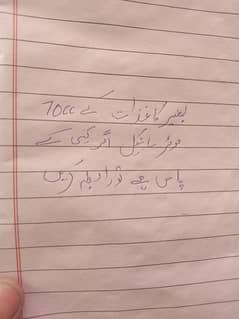 بغیر کاغذات کے 70cc
موٹر سائیکل اگر کسی کے
پاس ہے تو رابطہ کریں